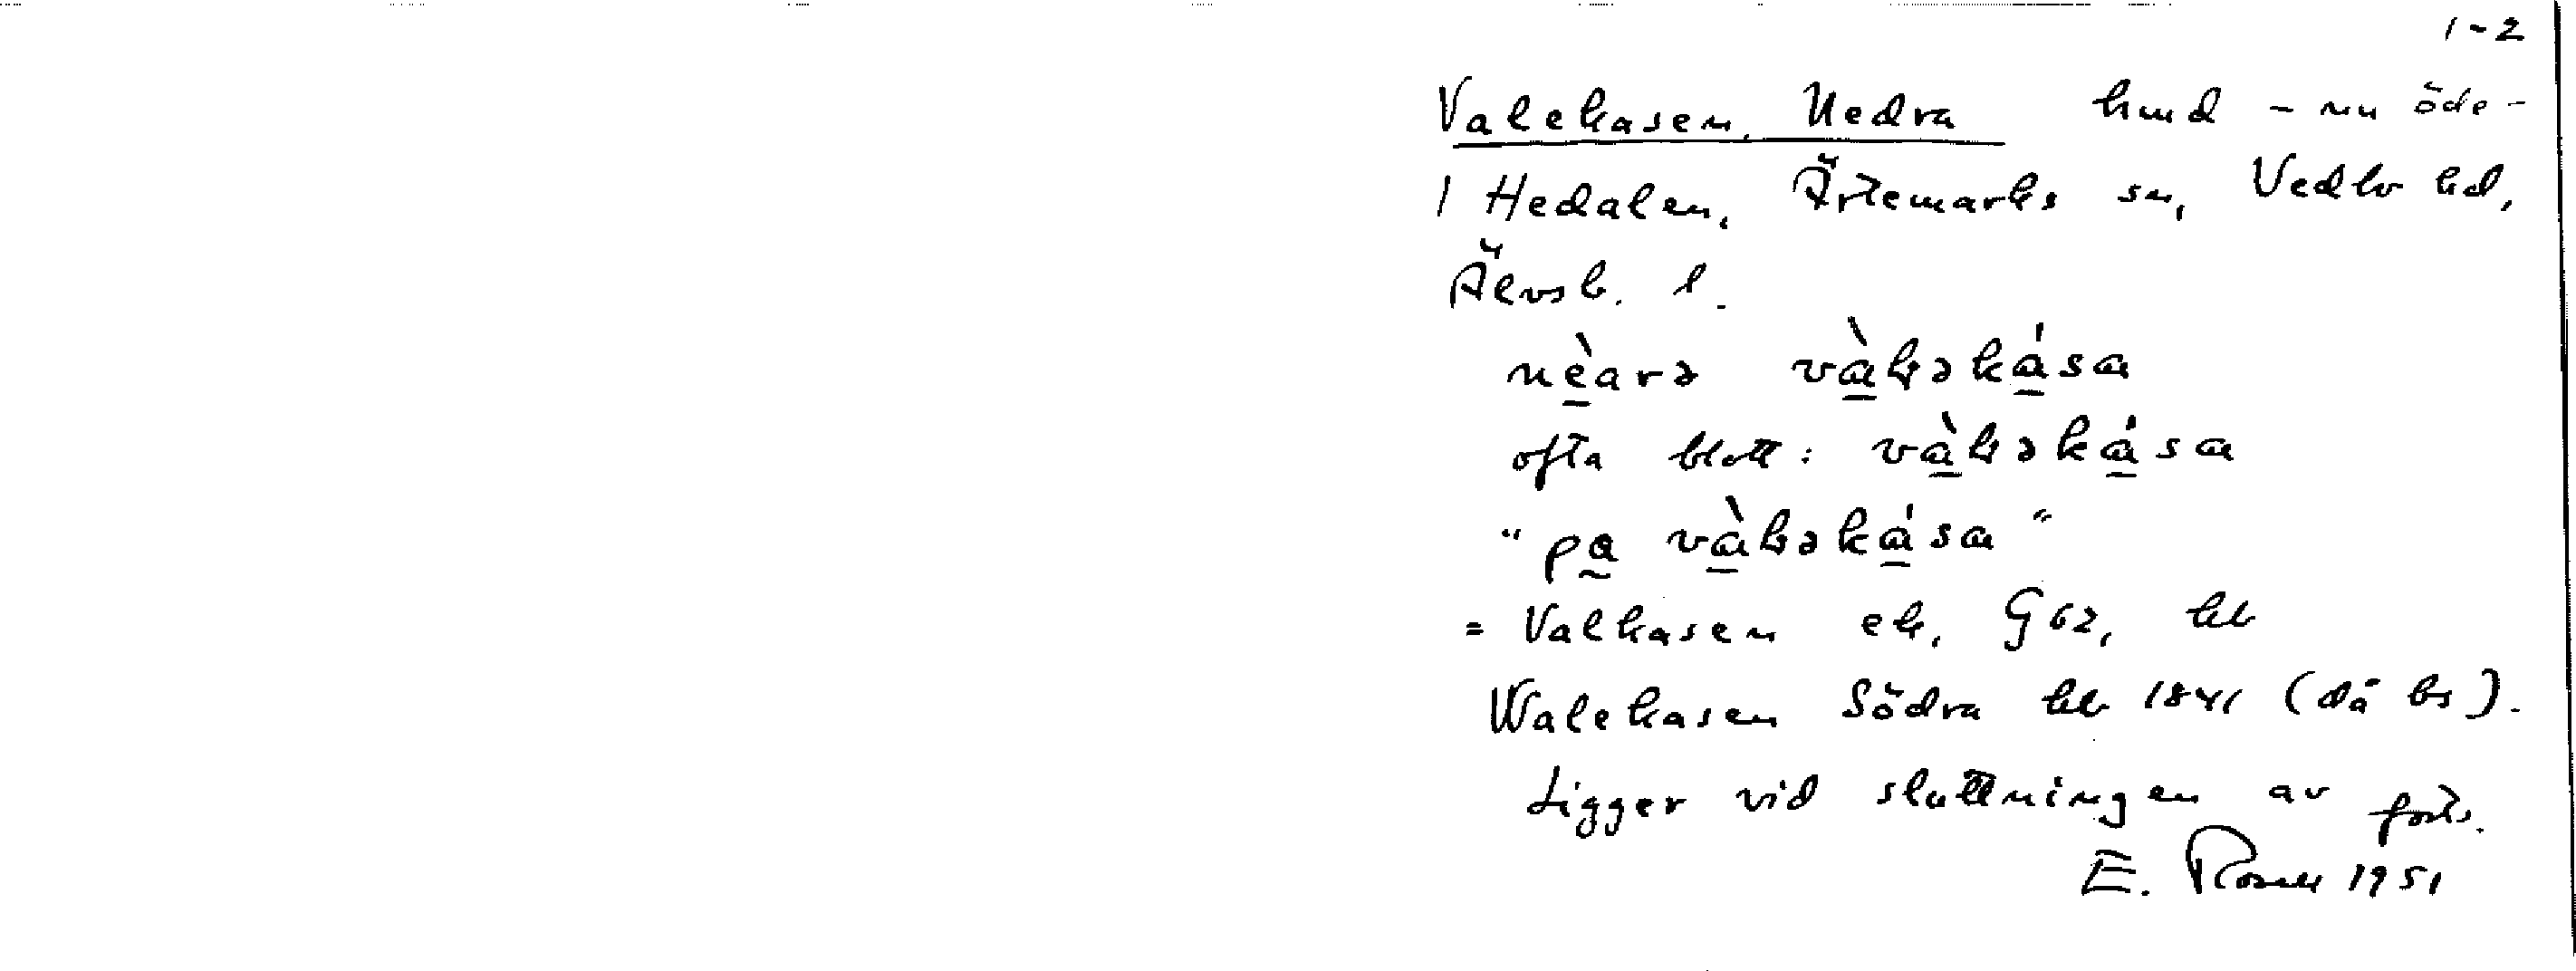 1-2
Valekasen, Nedra hmd - nu öde -
I Hedalen, Ärtemarks sn, Vedbo hd,
Älvsb. l.
nèarə vàləkása
ofta blott: vàləkása
"pa vàləkása"
= Valkasen ek. G62, kb
Walekasen Södra kb 1841 (då bs).
Ligger vid sluttningen av forts.
E. Rosell 1951